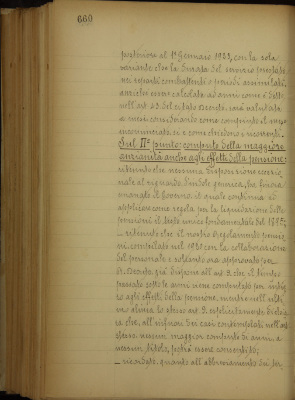 660
posteriore al 1° Gennaio 1923, con la sola
variante che la durata del servizio prestato
nei reparti combattenti e periodi assimilati,
anziché essere calcolata ad anni come è detto
nell'art. 43 del citato decreto, sarà valutata
a mesi considerando come compiuto il mese
incominciato, e come chiedono i ricorrenti.
Sul II° punto: computo della maggiore
anzianità anche agli effetti della pensione:
ritenuto che nessuna disposizione eccezio-
nale al riguardo, d'indole generica, ha finora
emanato il Governo, il quale continua ad
applicare come regola per la liquidazione delle
pensioni il testo unico fondamentale del 1895;
_ ritenuto che il nostro Regolamento pensio-
ni, compilato nel 1920 con la collaborazione
del personale e andato ora approvato per
decreto, già dispone all'art. 2 che il tempo
passato sotto le armi viene computato per intie-
ro agli effetti della pensione, mentre nell'ulti-
mo alinea lo stesso art. 2 esplicitamente dichia-
ra che, all'infuori dei casi contemplati nell'art.
stesso nessun maggior computo di anni, a
nessun titolo, potrà essere consentito;
_ ricordato, quanto all'abbreviamento dei per-